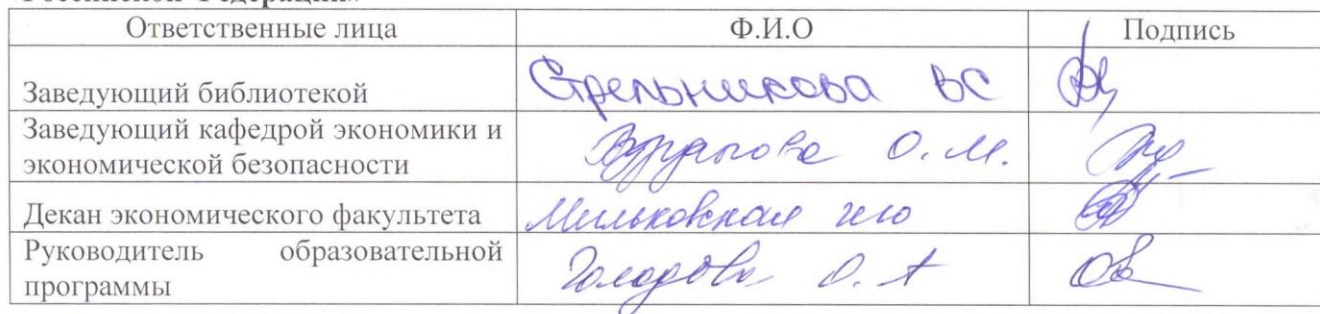 Российской Федерации»
Ответственные лица Ф.И.О Подпись
Заведующий библиотекой Стрельникова ВС
Заведующий кафедрой экономики и
экономической безопасности О.М.
Декан экономического факультета Мильковская
Руководитель образовательной
программы О.А